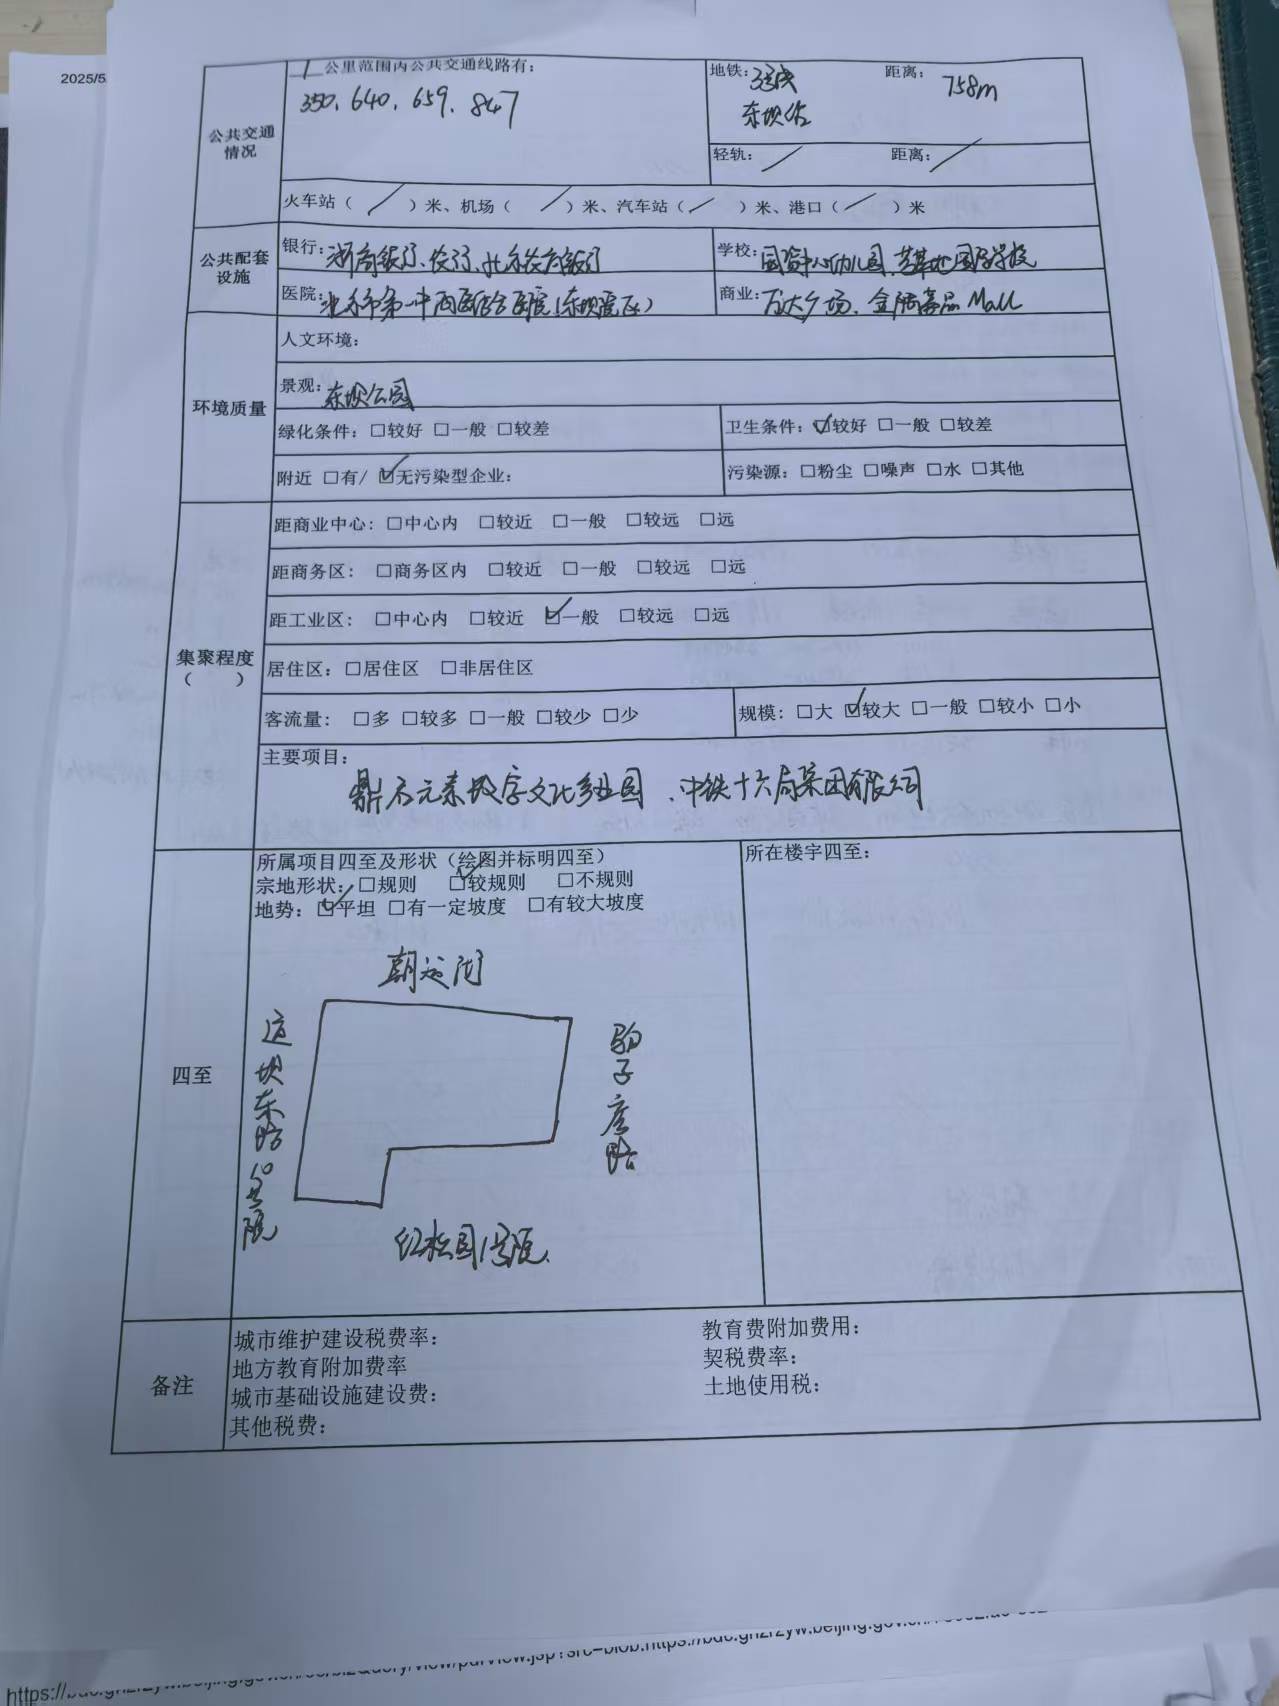 2025/5
公共交通情况
1公里范围内公共交通线路有：
350、640、659、847
地铁：3号线 距离：758m
东坝站
轻轨：／ 距离：／
火车站（ ／ ）米、机场（ ／ ）米、汽车站（ ／ ）米、港口（ ／ ）米
公共配套设施
银行：浙商银行、农行、北京农商银行
学校：国资中心幼儿园、芳草地国际学校
医院：北京市第一中西医结合医院（东坝院区）
商业：万达广场、金隅嘉品Mall
环境质量
人文环境：
景观：东坝公园
绿化条件：□较好 □一般 □较差
卫生条件：☑较好 □一般 □较差
附近 □有/ ☑无污染型企业：
污染源：□粉尘 □噪声 □水 □其他
集聚程度
（ ）
距商业中心：□中心内 □较近 □一般 □较远 □远
距商务区：□商务区内 □较近 □一般 □较远 □远
距工业区：□中心内 □较近 ☑一般 □较远 □远
居住区：□居住区 □非居住区
客流量：□多 □较多 □一般 □较少 □少
规模：□大 ☑较大 □一般 □较小 □小
主要项目：
鼎石元素数字文化产业园、中铁十六局集团有限公司
四至
所属项目四至及形状（绘图并标明四至）
宗地形状：□规则 ☑较规则 □不规则
地势：☑平坦 □有一定坡度 □有较大坡度
所在楼宇四至：
朝
坝东路
号院
驹子房路
红松园1号院
备注
城市维护建设税费率：
教育费附加费用：
地方教育附加费率
契税费率：
城市基础设施建设费：
土地使用税：
其他税费：
https://